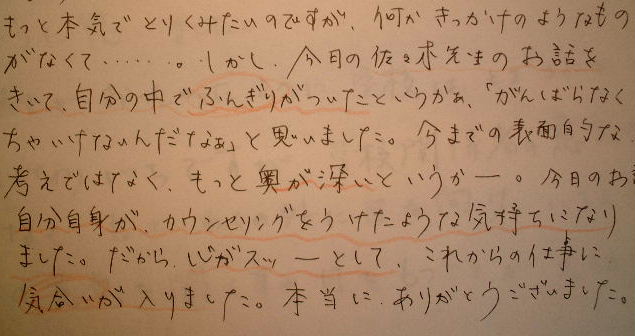 もっと本気でとりくみたいのですが、何かきっかけのようなもの
がなくて……。しかし、今日の佐々木先生のお話を
きいて、自分の中でふんぎりがついたというかぁ、「がんばらなく
ちゃいけないんだなぁ」と思いました。今までの表面的な
考えではなく、もっと奥が深いというかー。今日のお
自分自身が、カウンセリングをうけたような気持ちになり
ました。だから、心がスッーとして、これからの仕事に
気合いが入りました。本当に、ありがとうございました。